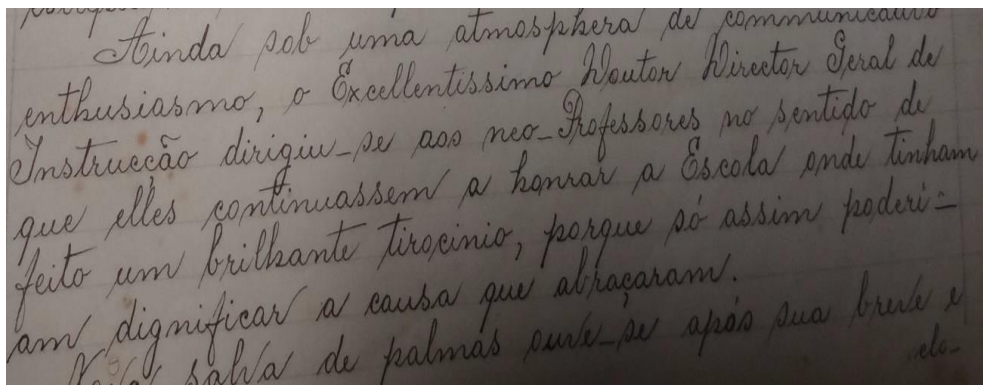 Ainda sob uma atmosphera de communicativo
enthusiasmo, o Excellentissimo Doutor Director Geral de
Instrucção dirigiu-se aos neo-Professores no sentido de
que elles continuassem a honrar a Escola onde tinham
feito um brilhante tirocinio, porque só assim poderi=
am dignificar a causa que abraçaram.
Nova salva de palmas ouve-se após sua breve e
elo-